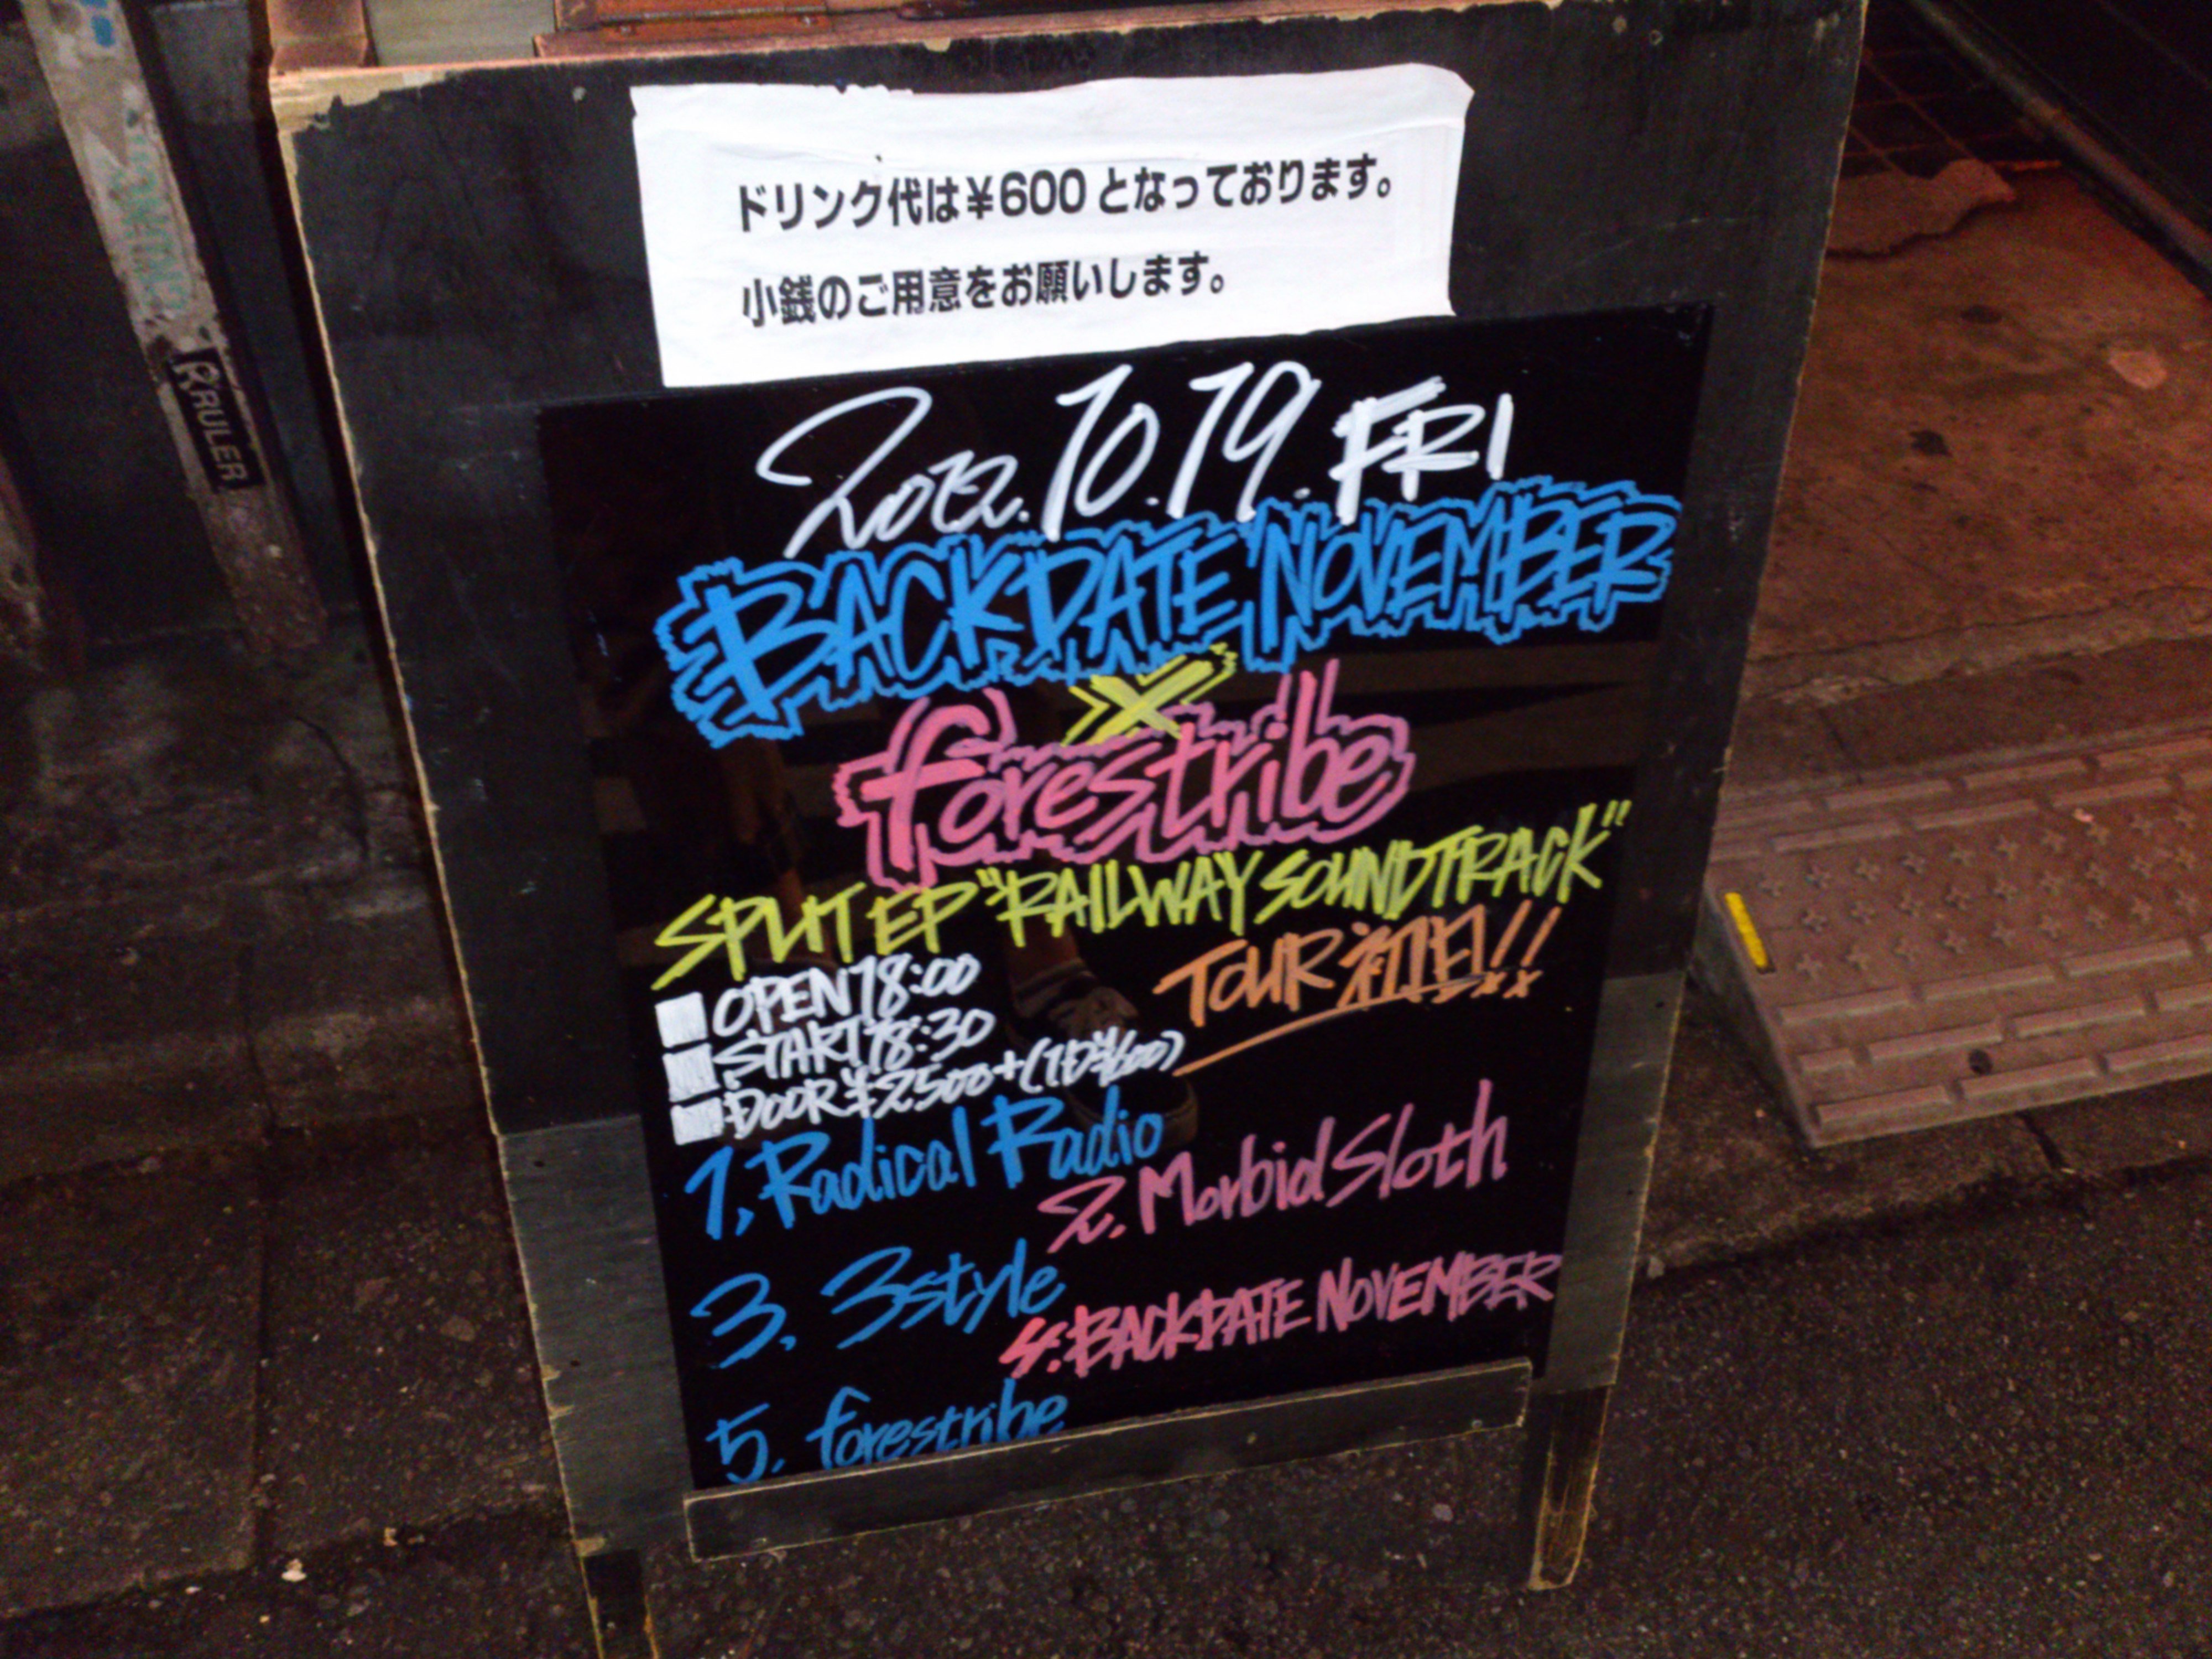 ドリンク代は¥600となっております。
小銭のご用意をお願いします。
2012.10.19.FRI
BACKDATE NOVEMBER
×
forestribe
SPLIT EP "RAILWAY SOUNDTRACK"
TOUR 初日!!
OPEN 18:00
START 18:30
DOOR ¥2500+(1D¥600)
1. Radical Radio
2. Morbid Sloth
3. 3style
4. BACKDATE NOVEMBER
5. forestribe
KRULER